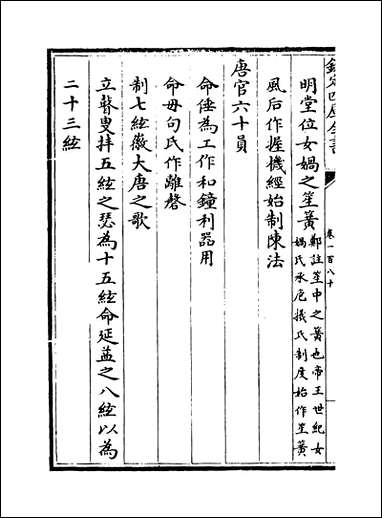 欽定四庫全書
卷一百八十
明堂位女媧之笙簧鄭註笙中之簧也帝王世紀女
媧氏承庖犧氏制度始作笙簧
風后作握機經始制陳法
唐官六十員
命倕為工作和鐘利器用
命毋句氏作離磬
制七絃徽大唐之歌
立瞽叟拌五絃之瑟為十五絃命延益之八絃以為
二十三絃